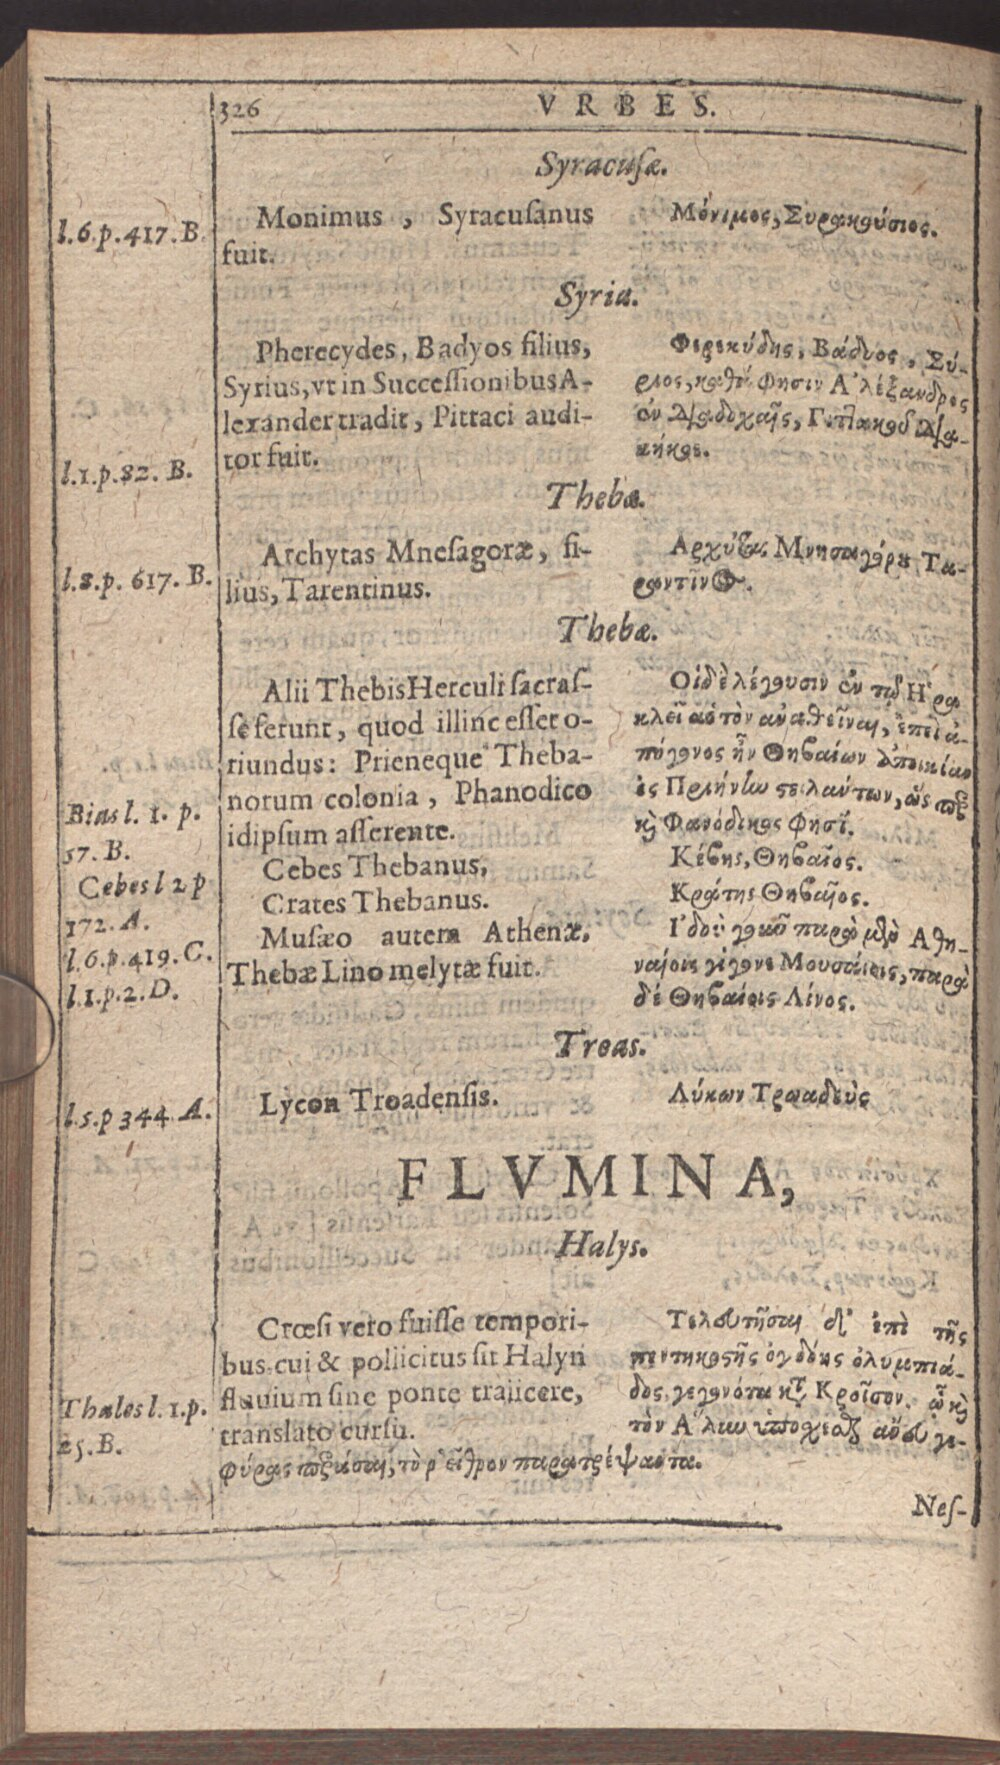 326 VRBES.
Syracusæ.
l.6.p.417.B.
Monimus , Syracusanus
fuit.
Μόνιμος, Συρακούσιος.
Syria.
Pherecydes, Badyos filius,
Syrius, vt in Successionibus A-
lexander tradit, Pittaci audi-
tor fuit.
l.1.p.82. B.
Φερεκύδης, Βάδυος, Σύ-
ριος, καθά φησιν Ἀλέξανδρος
ἐν Διαδοχαῖς, Πιττακοῦ δια-
κήκοε.
Thebæ.
l.8.p. 617. B.
Archytas Mnesagoræ, fi-
lius, Tarentinus.
Αρχύτας Μνησαγόρου Τα-
ραντῖνος.
Thebæ.
Alii Thebis Herculi sacras-
se ferunt, quod illinc esset o-
riundus: Prieneque Theba-
norum colonia , Phanodico
idipsum asserente.
Bias l. 1. p.
57. B.
Οἱ δὲ λέγουσιν ἐν τῷ Ἡρα
κλεῖ αὐτὸν ἀναθεῖναι, ἐπεὶ ἀ-
πόγονος ἦν Θηβαίων ἀποικίαν
ἐς Πριήνην στειλάντων, ὥς περ
κὶ Φανόδικος φησί.
Cebes l 2 p
172. A.
Cebes Thebanus,
Κέβης, Θηβαῖος.
l.6.p.419.C.
Crates Thebanus.
Κράτης Θηβαῖος.
l.1.p.2.D.
Musæo autem Athenæ,
Thebæ Lino melytæ fuit.
Ἰδοὺ γοῦν παρὰ μὲν Ἀθη-
ναίοις γέγονε Μουσαῖος, παρὰ
δὲ Θηβαίοις Λίνος.
Troas.
l.5.p 344 A.
Lycon Troadensis.
Λύκων Τρωαδεὺς
FLVMINA,
Halys.
Crœsi vero fuisse tempori-
bus cui & pollicitus sit Halyn
fluvium sine ponte traiicere,
translato cursu.
Thales l. 1.p.
25.B.
Τελευτῆσαι δ᾽ ἐπὶ τῆς
πεντηκοστῆς ὀγδόης ὀλυμπιά-
δος, γεγονότα κατὰ Κροῖσον. ᾧ κὶ
τὸν Ἅλυν ὑποσχέσθαι ἄνευ γε-
φύρας περᾶσαι, τὸ ῥεῖθρον παρατρέψαντα.
Nes-